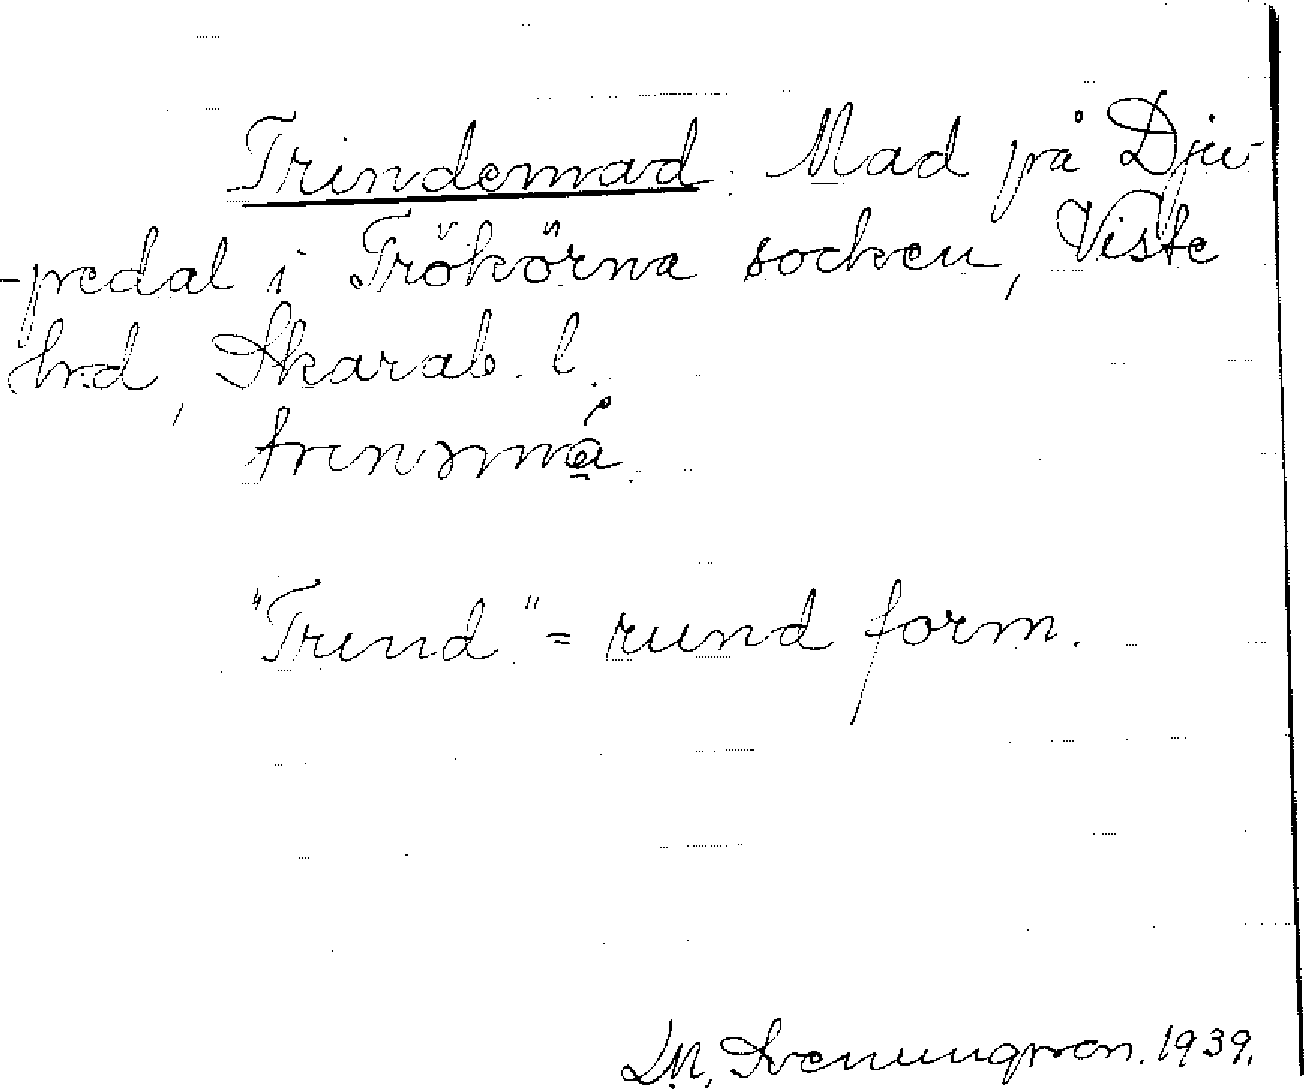 Trindemad. Mad på Dju-
-pedal i Trökörna socken, Viste
hrd, Skarab. l.
trensmå.
"Trend" = rund form.
D.N. Svenungsson. 1939.